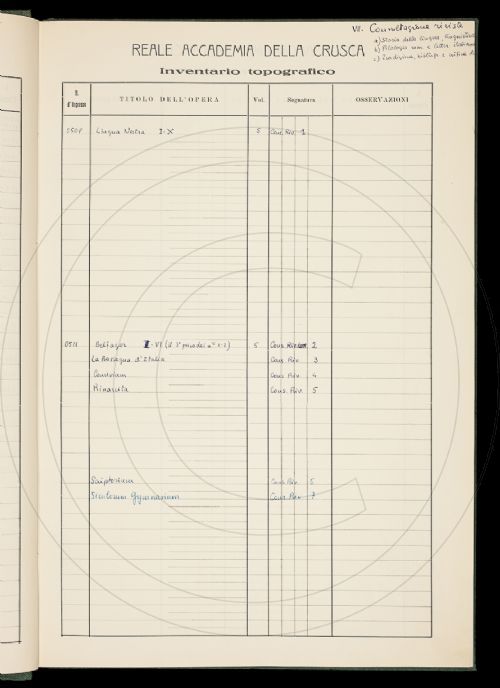 VII. Consultazione riviste
a) Storia della lingua, linguistica
b) Filologia rom. e letter. italiana
c)
REALE ACCADEMIA DELLA CRUSCA
Inventario topografico
N. d'Ingresso TITOLO DELL'OPERA Vol. Segnatura OSSERVAZIONI
Lingua Nostra I-X 5 Cons. Riv. 1
Belfagor I-VI (il 3° privo dei n.i 1-2) 5 Cons. Riv. 2
La Rassegna d'Italia Cons. Riv. 3
Convivium Cons. Riv. 4
Rinascita Cons. Riv. 5
Scriptorium Cons. Riv.
Siculorum Gymnasium Cons. Riv. 7